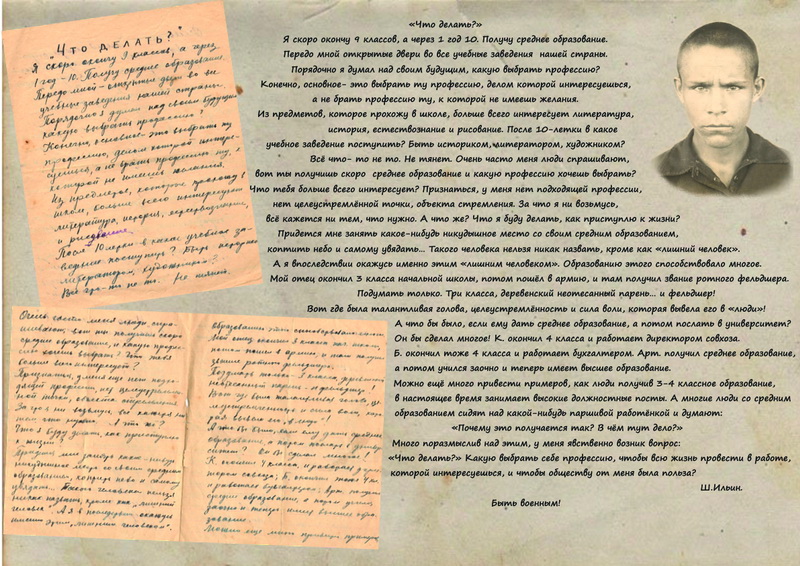 "Что делать?"
Я скоро окончу 9 классов, а через
1 год - 10. Получу среднее образование.
Передо мной - открытые двери во все
учебные заведения нашей страны.
Порядочно я думал над своим будущим
какую выбрать профессию?
Конечно, основное - это выбрать ту
профессию, делом которой интере-
суешься, а не брать профессию ту, к
которой не имеешь желания.
Из предметов, которые прохожу в
школе, больше всего интересует
литература, история, естествознание,
и рисование.
После 10-летки в какое учебное за-
ведение поступить? Быть историком,
литератором, художником?
Всё что-то не то. Не тянет.
Очень часто меня люди спра-
шивают, вот ты получишь скоро
среднее образование, и какую профес-
сию хочешь выбрать? Что тебя
больше всего интересует?
Признаться, у меня ещё нет подхо-
дящей профессии, нет целеустремлён-
ной точки, объекта стремления.
За что я ни возьмусь, всё кажется ни
тем, что нужно. А что же?
Что я буду делать, как приступлю
к жизни?
Придётся мне занять какое-нибудь
никудышное место со своим средним
образованием, коптить небо и самому
увядать... Такого человека нельзя
никак назвать, кроме как "лишний
человек". А я в последствии окажусь
именно этим "лишним человеком".
Образованию этому способствовало многое.
Мой отец окончил 3 класса нач. школы,
потом пошёл в армию, и там получил
звание ротного фельдшера.
Подумать только. 3 класса, деревенский
неотёсанный парень... и фельдшер!
Вот где была талантливая голова, це-
леустремлённость и сила воли, кото-
рая вывела его в "люди"!
А что бы было, если ему дать среднее
образование, а потом послать в универ-
ситет? Он бы сделал многое!
К. окончил 4 класса, и работает дирек-
тором совхоза; Б. окончил тоже 4 кл.
и работает бухгалтером. Арт. получил
среднее образование, а потом учился
заочно и теперь имеет высшее обра-
зование.
Можно ещё много привести примеров
«Что делать?»
Я скоро окончу 9 классов, а через 1 год 10. Получу среднее образование.
Передо мной открытые двери во все учебные заведения нашей страны.
Порядочно я думал над своим будущим, какую выбрать профессию?
Конечно, основное- это выбрать ту профессию, делом которой интересуешься,
а не брать профессию ту, к которой не имеешь желания.
Из предметов, которое прохожу в школе, больше всего интересует литература,
история, естествознание и рисование. После 10-летки в какое
учебное заведение поступить? Быть историком, литератором, художником?
Всё что- то не то. Не тянет. Очень часто меня люди спрашивают,
вот ты получишь скоро среднее образование и какую профессию хочешь выбрать?
Что тебя больше всего интересует? Признаться, у меня нет подходящей профессии,
нет целеустремлённой точки, объекта стремления. За что я ни возьмусь,
всё кажется ни тем, что нужно. А что же? Что я буду делать, как приступлю к жизни?
Придется мне занять какое-нибудь никудышное место со своим средним образованием,
коптить небо и самому увядать... Такого человека нельзя никак назвать, кроме как «лишний человек».
А я впоследствии окажусь именно этим «лишним человеком». Образованию этого способствовало многое.
Мой отец окончил 3 класса начальной школы, потом пошёл в армию, и там получил звание ротного фельдшера.
Подумать только. Три класса, деревенский неотесанный парень... и фельдшер!
Вот где была талантливая голова, целеустремлённость и сила воли, которая вывела его в «люди»!
А что бы было, если ему дать среднее образование, а потом послать в университет?
Он бы сделал многое! К. окончил 4 класса и работает директором совхоза.
Б. окончил тоже 4 класса и работает бухгалтером. Арт. получил среднее образование,
а потом учился заочно и теперь имеет высшее образование.
Можно ещё много привести примеров, как люди получив 3-4 классное образование,
в настоящее время занимает высокие должностные посты. А многие люди со средним
образованием сидят над какой-нибудь паршивой работёнкой и думают:
«Почему это получается так? В чём тут дело?»
Много поразмыслив над этим, у меня явственно возник вопрос:
«Что делать?» Какую выбрать себе профессию, чтобы всю жизнь провести в работе,
которой интересуешься, и чтобы обществу от меня была польза?
Ш.Ильин.
Быть военным!